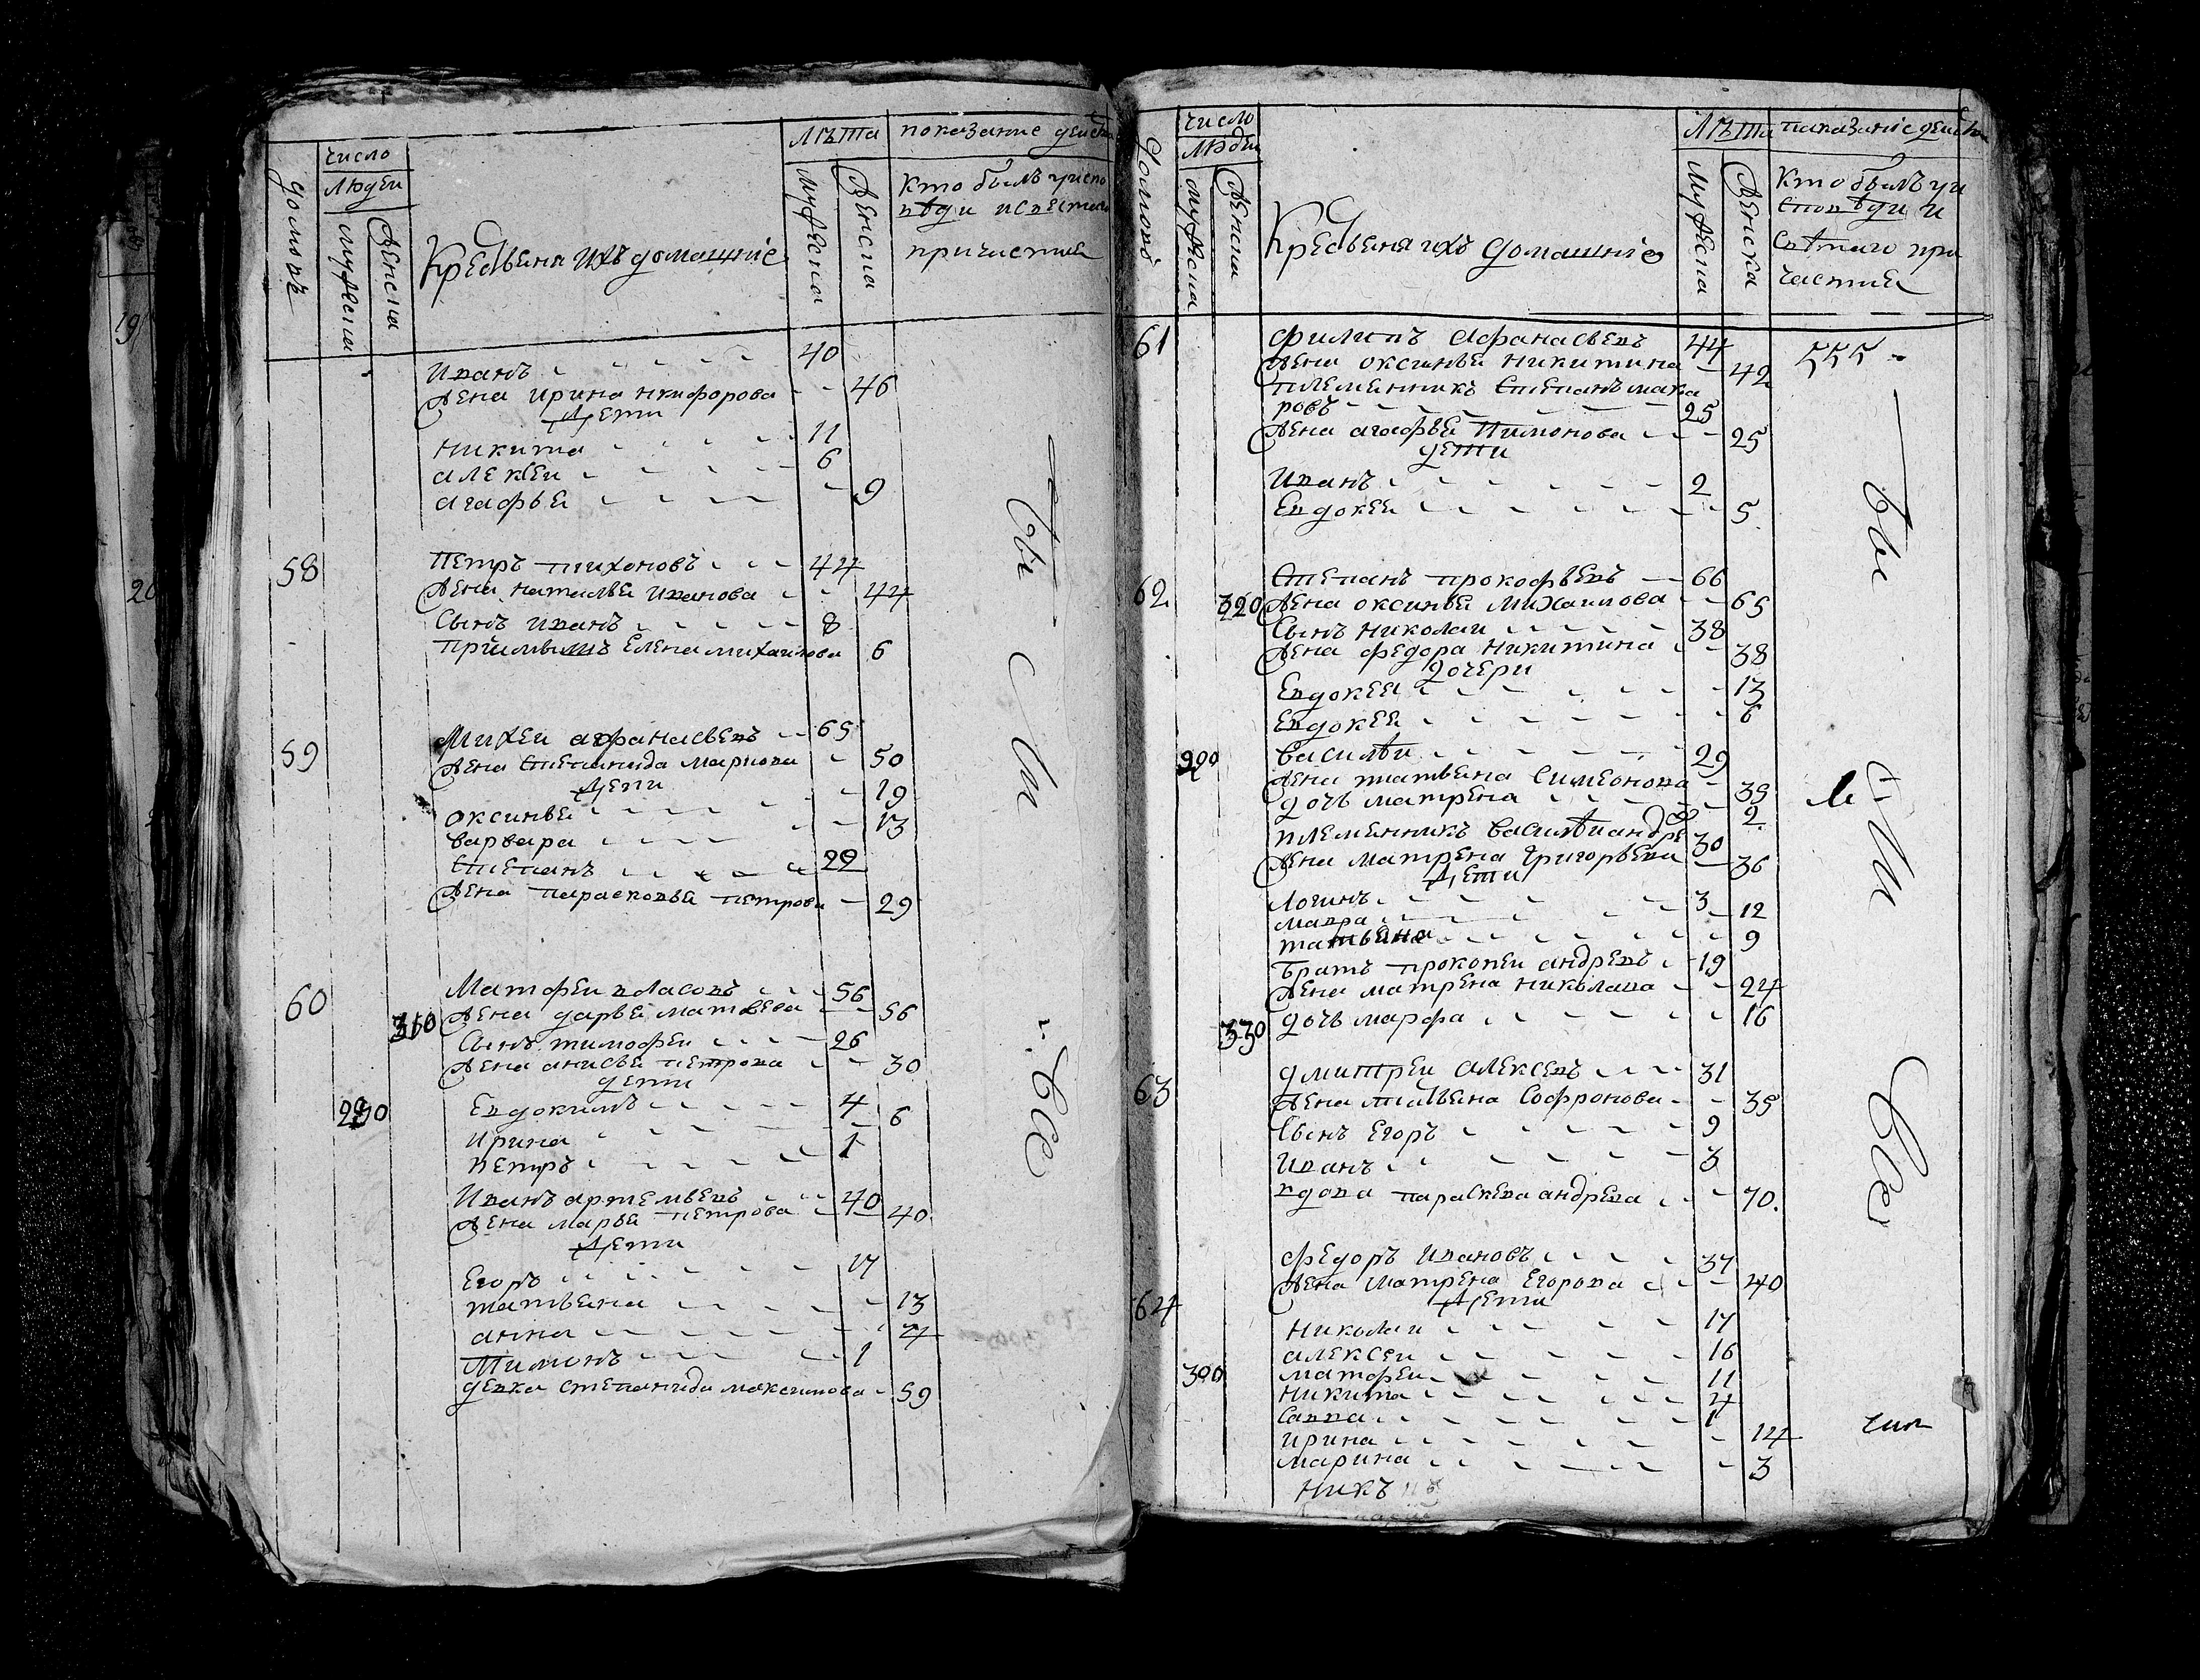 число
людеи
лѣта
показание деист
домовъ
мужеска
женска
Крестьяня ихъ домашние
мужеска
женска
кто былъ уиспо
вѣди испестаго
причастия
Иванъ 40
Жена Ирина Никифорова 46
Дети
Никита 11
Алексеи 6
Агафья 9
58 Петръ Тихоновъ 44
Жена Наталья Иванова 44
Сынъ Иванъ 8
Приимышъ Елена Михаилова 6
59 Михеи Афанасьевъ 65
Жена Степанида Маркова 50
Дети
Оксинья 19
Варвара 13
Степанъ 22
Жена Парасковья Петрова 29
60 Матфеи Власовъ 56
310 Жена Дарья Матвеева 56
Сынъ Тимофеи 26
Жена Анисья Петрова 30
дети
290 Евдокимъ 4
Ирина 6
Петръ 1
Иванъ Артемьевъ 40
Жена Марья Петрова 40
Дети
Егоръ 17
Татьяна 13
Анна 4
Тимонъ 1
девка Степанида Максимова 59
бы
ли
все
число
людеи
лѣта
показание деиств
домовъ
мужеска
женска
Крестьяня ихъ домашние
мужеска
женска
кто былъ уи
споведи и
святаго при
частия
61 Филипъ Афанасьевъ 44 555
Жена Оксинья Никитина 42
племянникъ Степанъ Мака
ровъ 25
Жена Агафья Пимонова 25
дети
Иванъ 2
Евдокея 5
62 Степанъ Прокофьевъ 66
320 Жена Оксинья Михаилова 65
Сынъ Николаи 38
Жена Федора Никитина 38
дочери
Евдокея 13
Евдокея 6
Василѣи 29
Жена Татьяна Симеонова 35
дочь Матрена 2
племянникъ Василѣи Андре 30
Жена Матрена Григорьева 36
Дети
Логинъ 3
Мавра 12
Татьяна 9
братъ Прокопеи Андревъ 19
Жена Матрена Николава 24
330 дочь Марфа 16
63 Дмитреи Алексевъ 31
Жена Татьяна Софронова 35
Сынъ Егоръ 9
Иванъ 3
вдова Параскева Андрева 70
64 Федоръ Ивановъ 37
Жена Матрена Егорова 40
Дети
Николаи 17
Алексеи 16
300 Матфеи 11
Никита 4
Савва 1
Ирина 14
Марина 3
никъ
бы
ли
все